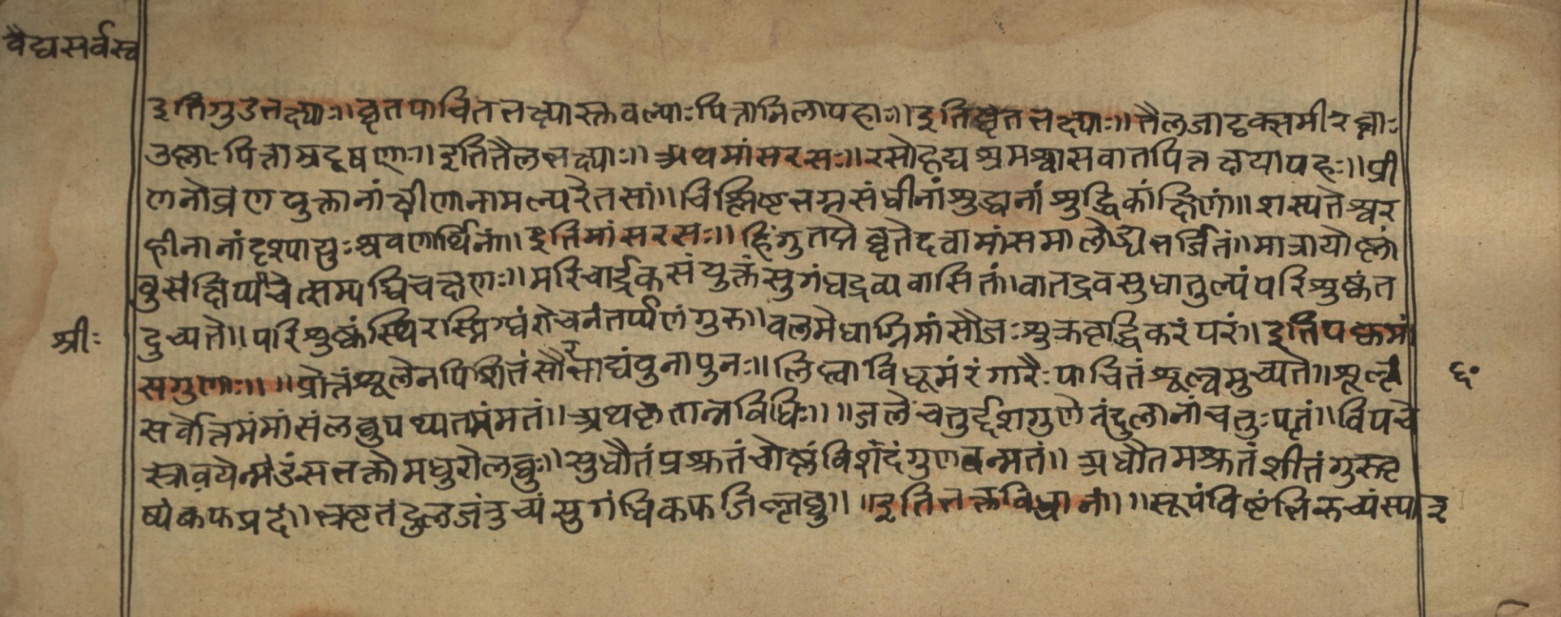 वैद्यसर्वस्व
इतिगुडभक्ष्याः॥घृतपाचितभक्ष्यास्तुवल्याःपित्तानिलापहाः॥इतिघृतभक्ष्याः॥तैलजादृक्समीरघ्नाः
उष्णाःपित्तास्रदूषणाः॥इतितैलभक्ष्याः॥अथमांसरसः॥रसोहृद्यश्रमश्वासवातपित्तक्षयापहः॥प्री
णनोव्रणयुक्तानांक्षीणानामल्परेतसां॥विश्लिष्टभग्नसंधीनांशुद्धानांशुद्धिकांक्षिणां॥शस्यतेश्वर
हीनानांदृश्पायुःश्रवणार्थिनां॥इतिमांसरसः॥हिंगुतप्तेघृतेदवामांसमालोड्यभर्जितं॥मात्रायोष्णां
वुसंक्षिप्यंचेत्सम्यग्विचक्षणः॥मरिचार्द्रकसंयुक्तंसुगंधद्रव्यवासितं॥वातद्रवसुधातुल्यंपरिशुष्कंत
दुच्यते॥परिशुष्कंस्थिरस्निग्धंरोचनंतर्प्पणंगुरु॥वलमेधाग्निमांसौजःशुक्रवृद्धिकरंपरं॥इतिपक्कमां
सगुणाः॥॥प्रोतंशूलेनपिशितंसौसाद्यंपुनापुनः॥लिप्त्वाविधूमंरंगारैःपाचितंशूल्वमुच्यते॥शूल्पं
सर्वोत्तमंमांसंलघुपथ्यतमंमतं॥अथकृतान्नविधिः॥॥जलेचतुर्द्दशगुणेतंदुलानांचतुःपृतं॥विपचे
स्त्रावयेन्मंडंसभक्तोमधुरोलघुः॥सुधौतंप्रश्रुतंचोष्णंविशंदंगुणवन्मतं॥अधौतमश्रुतंशीतंगुरुवृ
ष्यंकफप्रदं॥भृष्टतंदुलजंरुच्यंसुगंधिकफजिल्लघु॥॥इतिभक्तविधानं॥॥सूपंविष्टंभिरुच्यंस्पार
श्रीः
६०